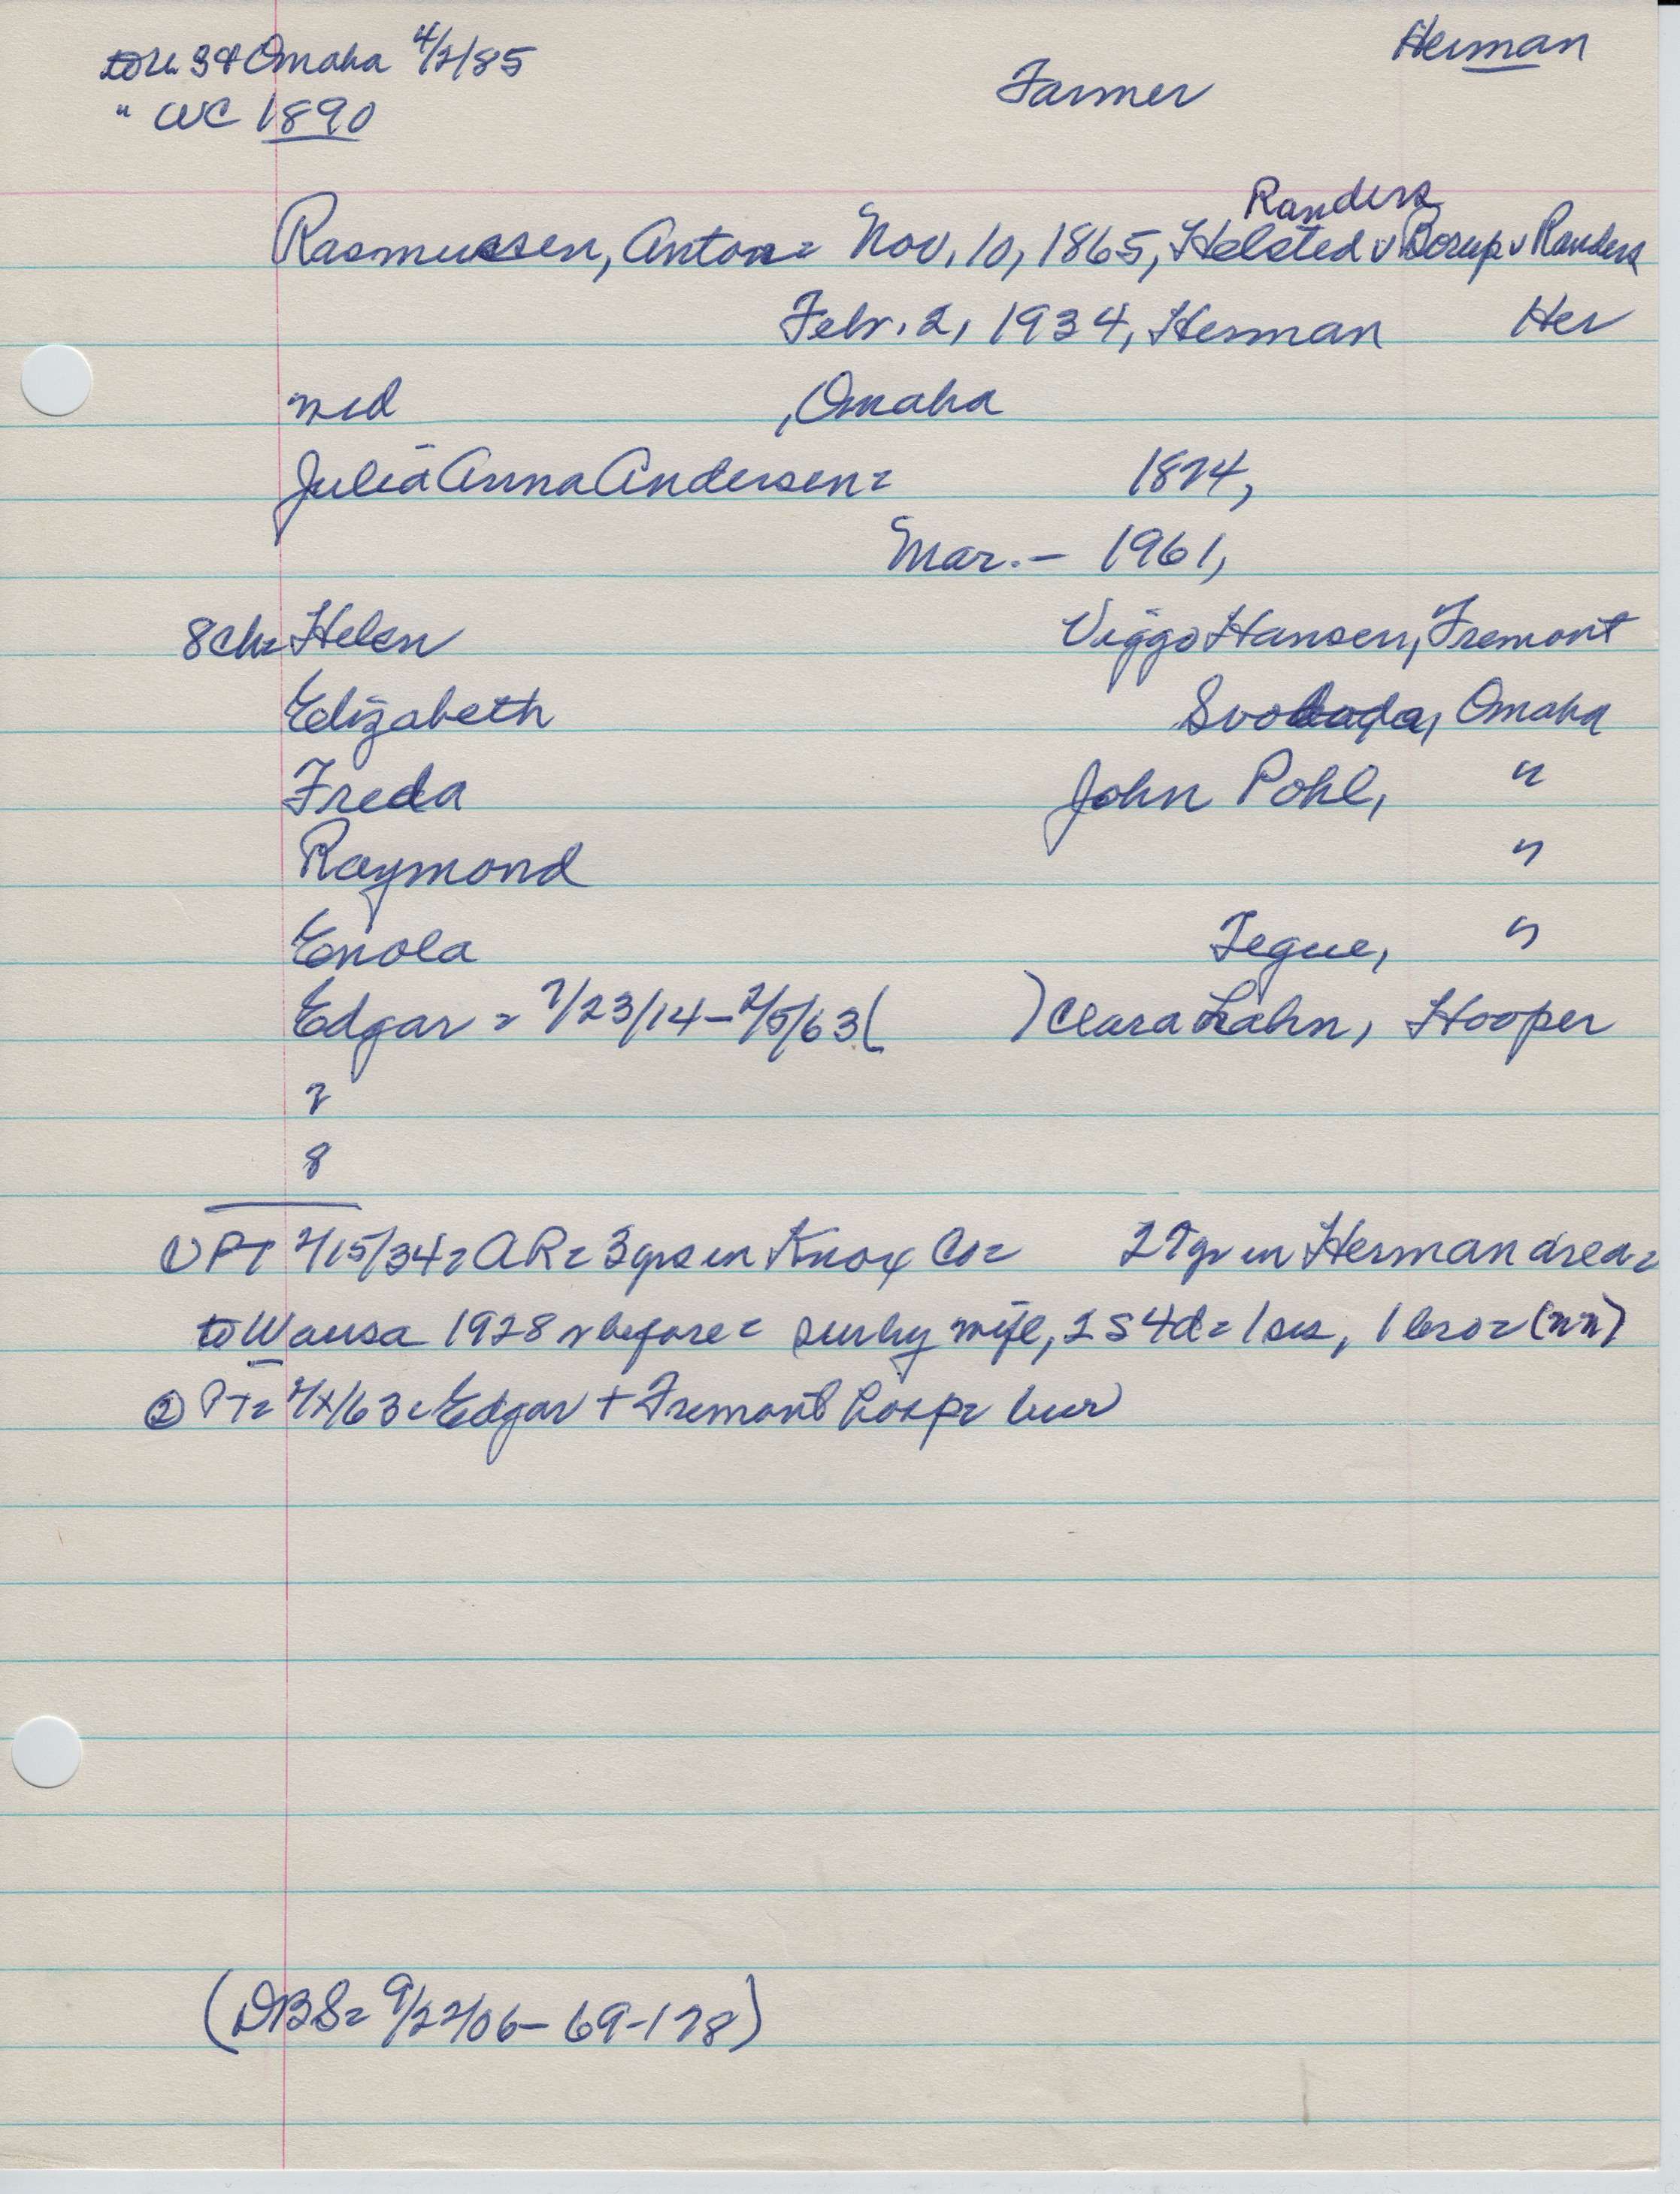 Herman
to U.S. & Omaha 4/2/85
Farmer
" WC 1890
Randers
Rasmussen, Anton = Nov. 10, 1865, Helsted v Borup v Randers
Febr. 2, 1934, Herman Her
md , Omaha
Julia Anna Andersen = 1874,
Mar. – 1961,
8 ch = Helen Viggo Hansen, Fremont
Elizabeth Svoboda, Omaha
Freda John Pohl, "
Raymond "
Enola Tegue, "
Edgar = 7/23/14 – 2/5/63 ( ) Clara Lahn, Hooper
7
8
① PT 2/15/34 = AR = 3 yrs in Knox Co = 27 yr in Herman area =
to Wausa 1928 v before = surv by wife, 2 s 4 d = 1 sis, 1 bro = (nn)
② PT = /63 = Edgar + Fremont hosp = bur
(DBS = 9/22/06 – 69-178)